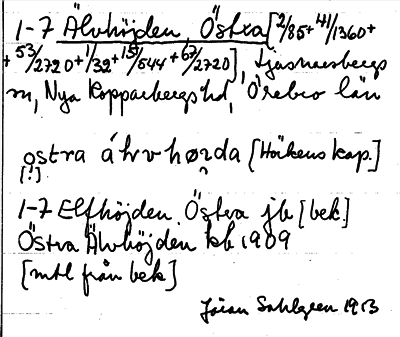 1-7 Älvhöjden, Östra [2/85+41/1360+
+53/2720+1/32+15/544+67/2720], Ljusnarsbergs
sn, Nya Kopparbergs hd, Örebro län
ostra áhvhørda [Hökens kap.]
[!]
1-7 Elfhöjden, Östra jb [bek]
Östra Älvhöjden kb 1909
[mtl från bek]
Jöran Sahlgren 1913